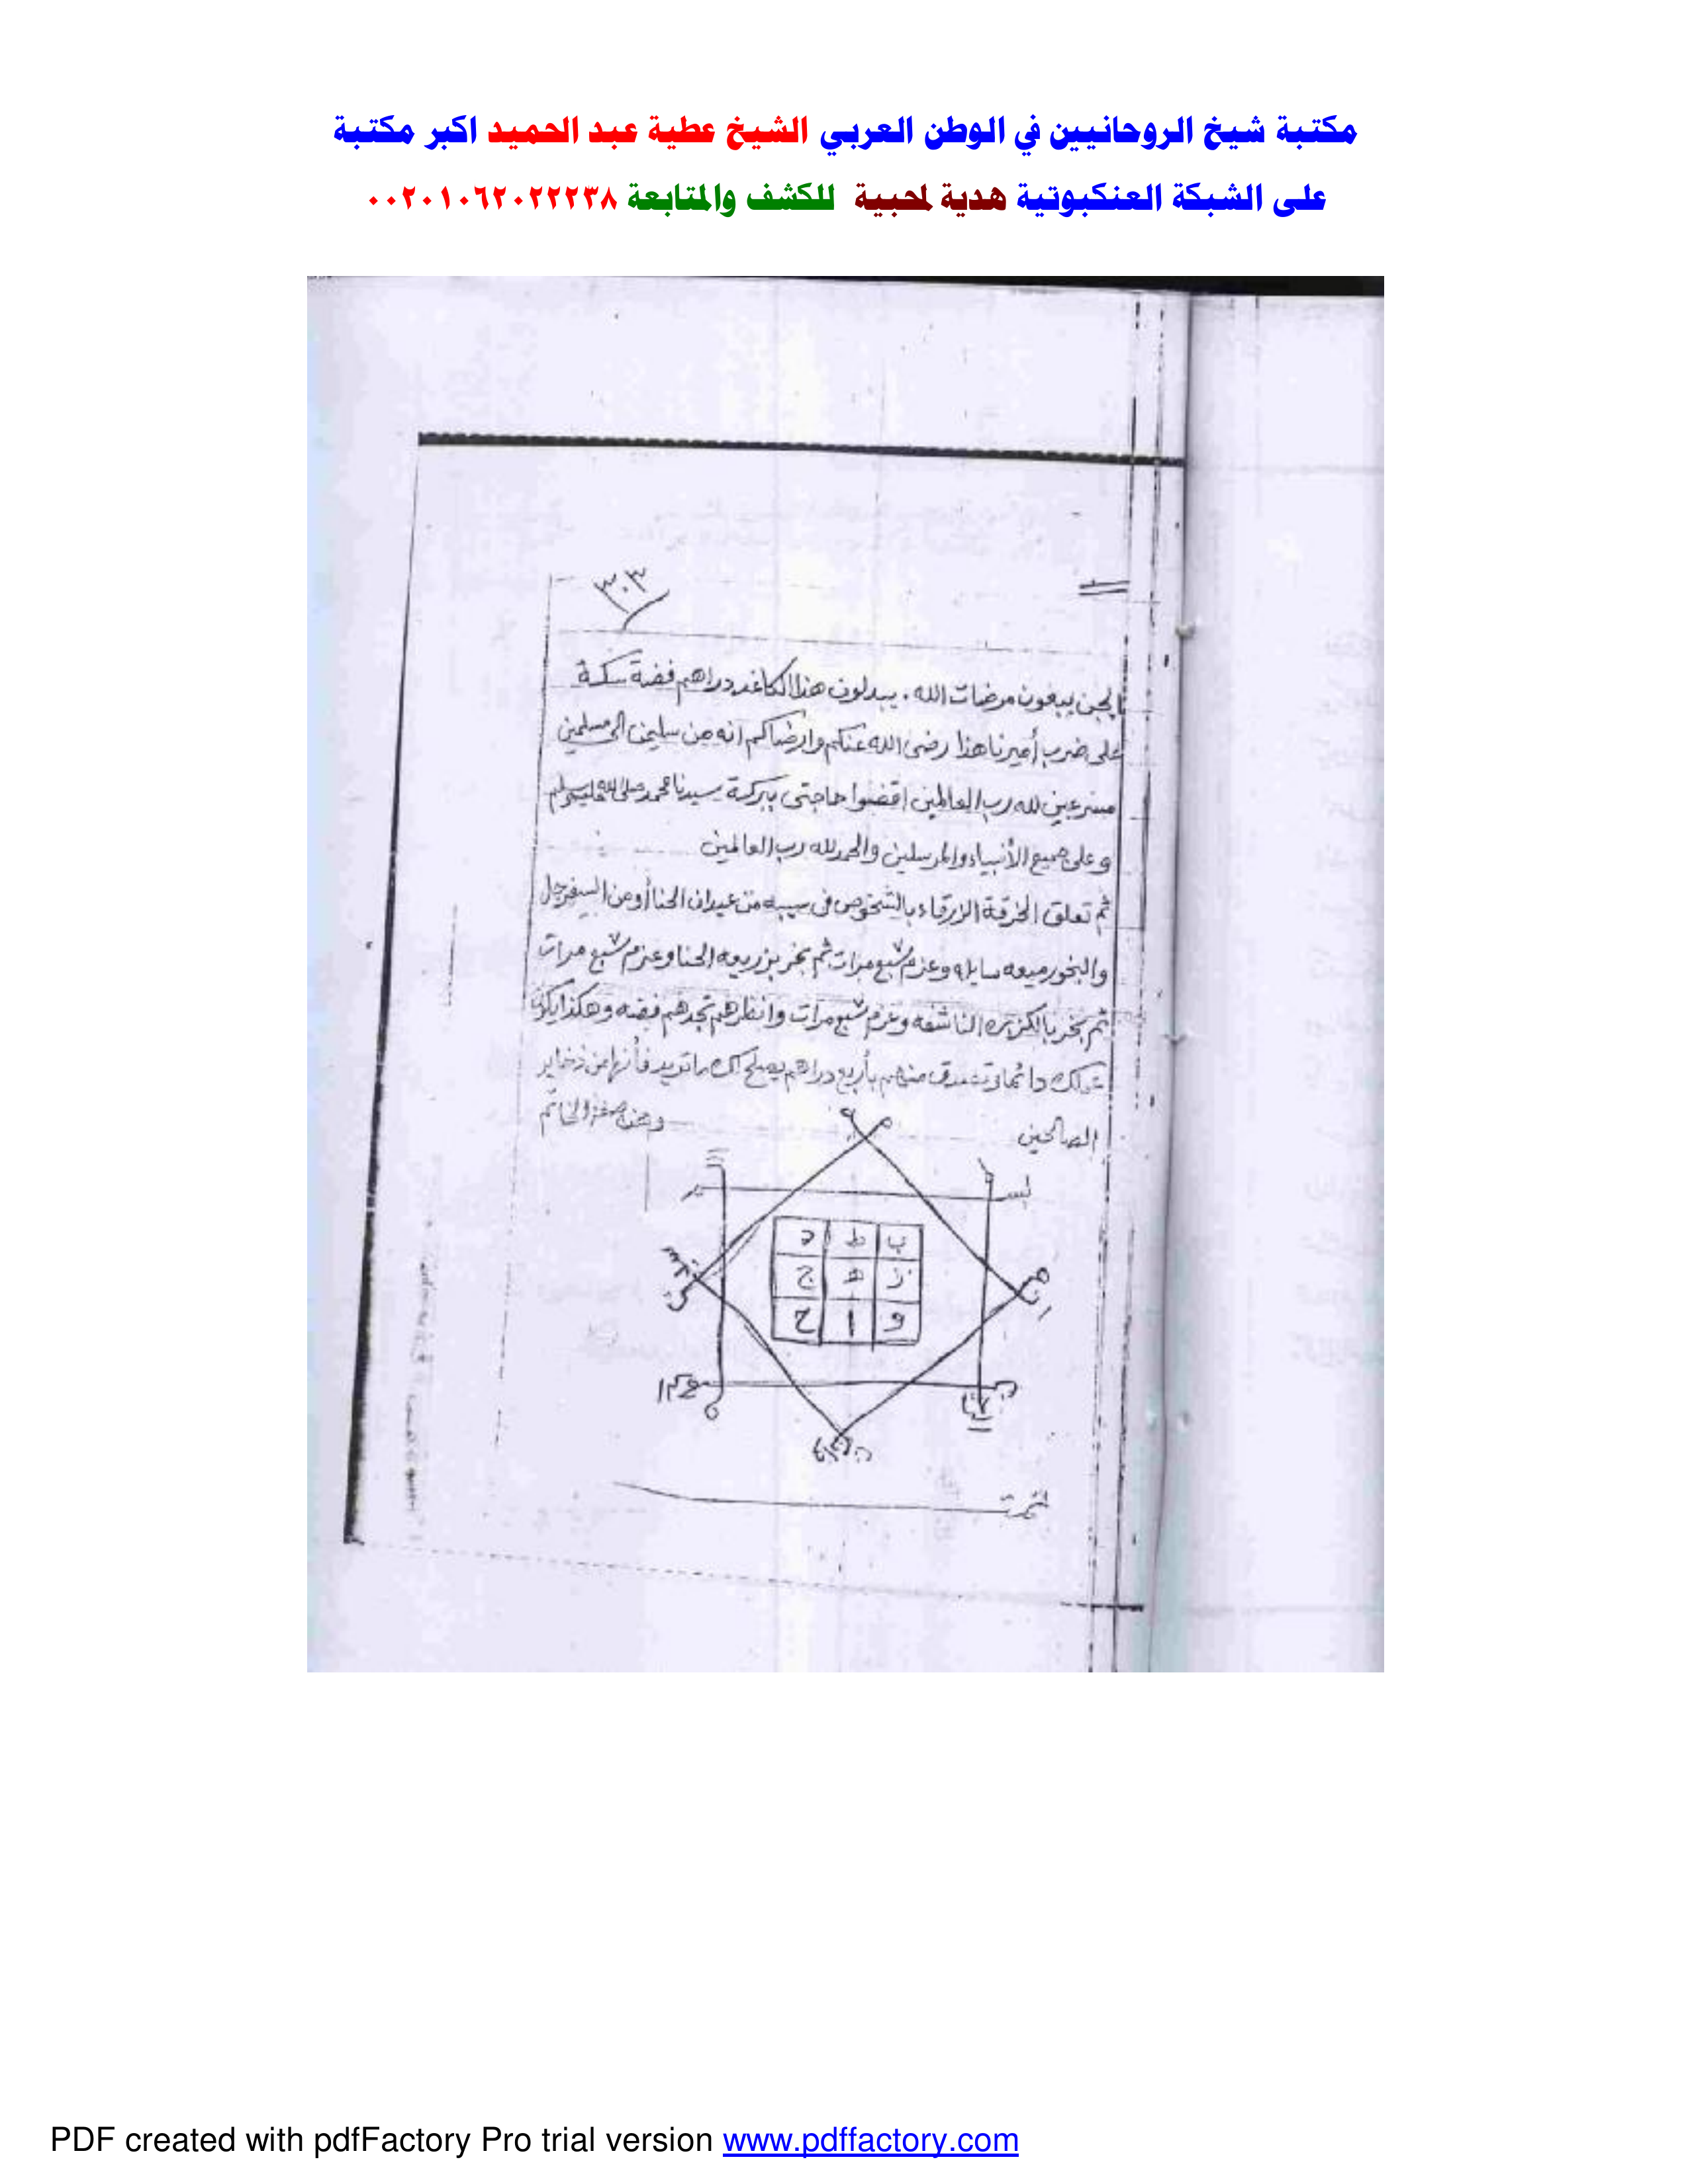 مكتبة شيخ الروحانيين في الوطن العربي الشيخ عطية عبد الحميد اكبر مكتبة
على الشبكة العنكبوتية هدية لمحبية للكشف والمتابعة ٠٠٢٠١٠٦٢٠٢٢٢٣٨
٣٠٣
الجن يبغون مرضات الله . يبدلون هذا الكاغد دراهم فضة سكة
على ضرب أميرنا هذا رضى الله عنكم وارضاكم انه من سليمن الى مسلمين
مسرعين لله رب العالمين اقضوا حاجتى ببركة سيدنا محمد صلى الله عليه وسلم
وعلى جميع الأنبياء والمرسلين والحمد لله رب العالمين
ثم تعلق الخرقة الزرقاء بالشخوص فى سيبه من عيدان الحنا أو من السفرجل
والبخور ميعه سايله وعزم سبع ٧ مرات ثم بخر بزريعه الحنا وعزم سبع ٧ مرات
ثم بخر بالكزبره الناشفه وعزم سبع ٧ مرات وانظرهم تجدهم فضه وهكذا يكون
دائما وتتصدق منهم بأربع دراهم يصلح لك ما تريد فأنها من ذخاير
الصالحين وهذه صفة الخاتم
بسـ
ب ط د
ز ه ج
و ا ح
تمت
PDF created with pdfFactory Pro trial version www.pdffactory.com